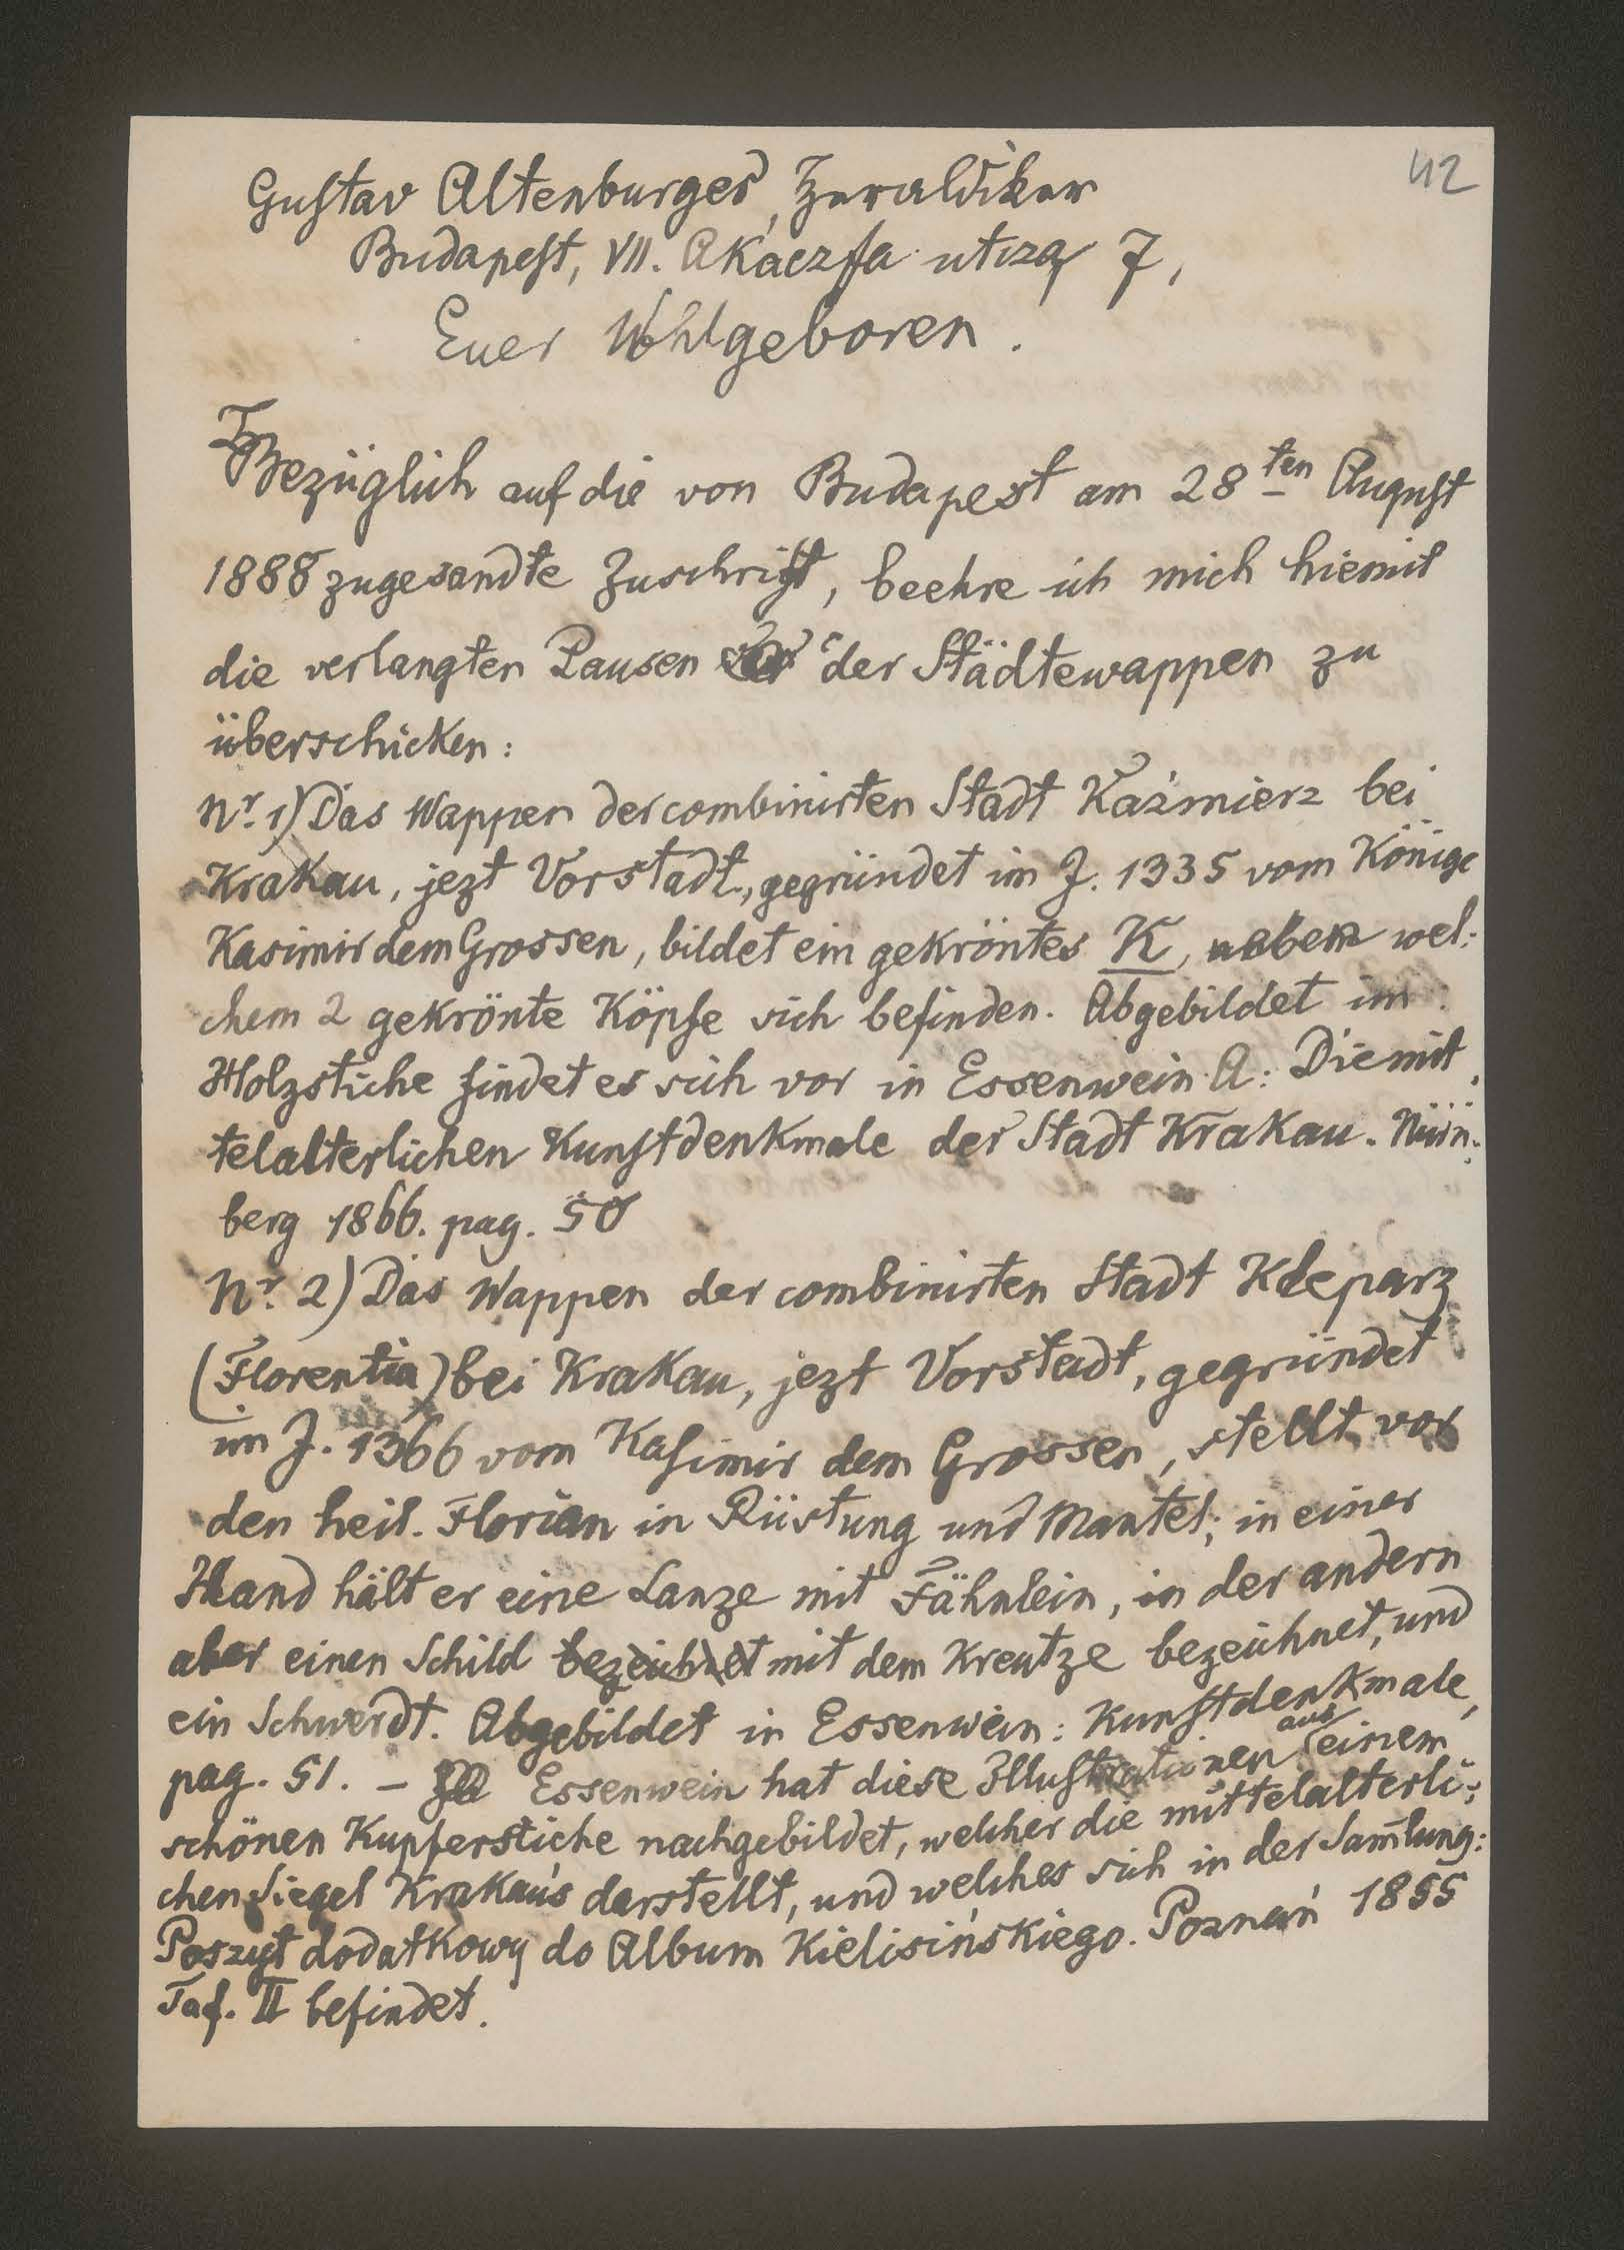 42
Gustav Altenburger, Heraldiker
Budapest, VII. Akáczfa utcza 7,
Euer Wohlgeboren.
Bezüglich auf die von Budapest am 28ten August
1888 zugesandte Zuschrift, beehre ich mich hiemit
die verlangten Pausen der Städtewappen zu
überschicken:
Nr. 1) Das Wappen der combinirten Stadt Kaźmierz bei
Krakau, jezt Vorstadt, gegründet im J. 1335 vom Könige
Kasimir dem Grossen, bildet ein gekröntes K, neben wel-
chem 2 gekrönte Köpfe sich befinden. Abgebildet im
Holzstiche findet es sich vor in Essenwein A: Die mit-
telalterlichen Kunstdenkmale der Stadt Krakau. Nürn-
berg 1866. pag. 50
Nr. 2) Das Wappen der combinirten Stadt Kleparz
(Florentia) bei Krakau, jezt Vorstadt, gegründet
im J. 1366 vom Kasimir dem Grossen, stellt vor
den heil. Florian in Rüstung und Mantel; in einer
Hand hält er eine Lanze mit Fähnlein, in der andern
aber einen Schild bezeichnet mit dem Kreutze bezeichnet, und
ein Schwerdt. Abgebildet in Essenwein: Kunstdenkmale,
pag. 51. – Essenwein hat diese Illustrationen aus einem
schönen Kupferstiche nachgebildet, welcher die mittelalterli-
chen Siegel Krakau's darstellt, und welches sich in der Sam̄lung:
Poszyt dodatkowy do Album Kielisińskiego. Poznań 1855
Taf. II befindet.